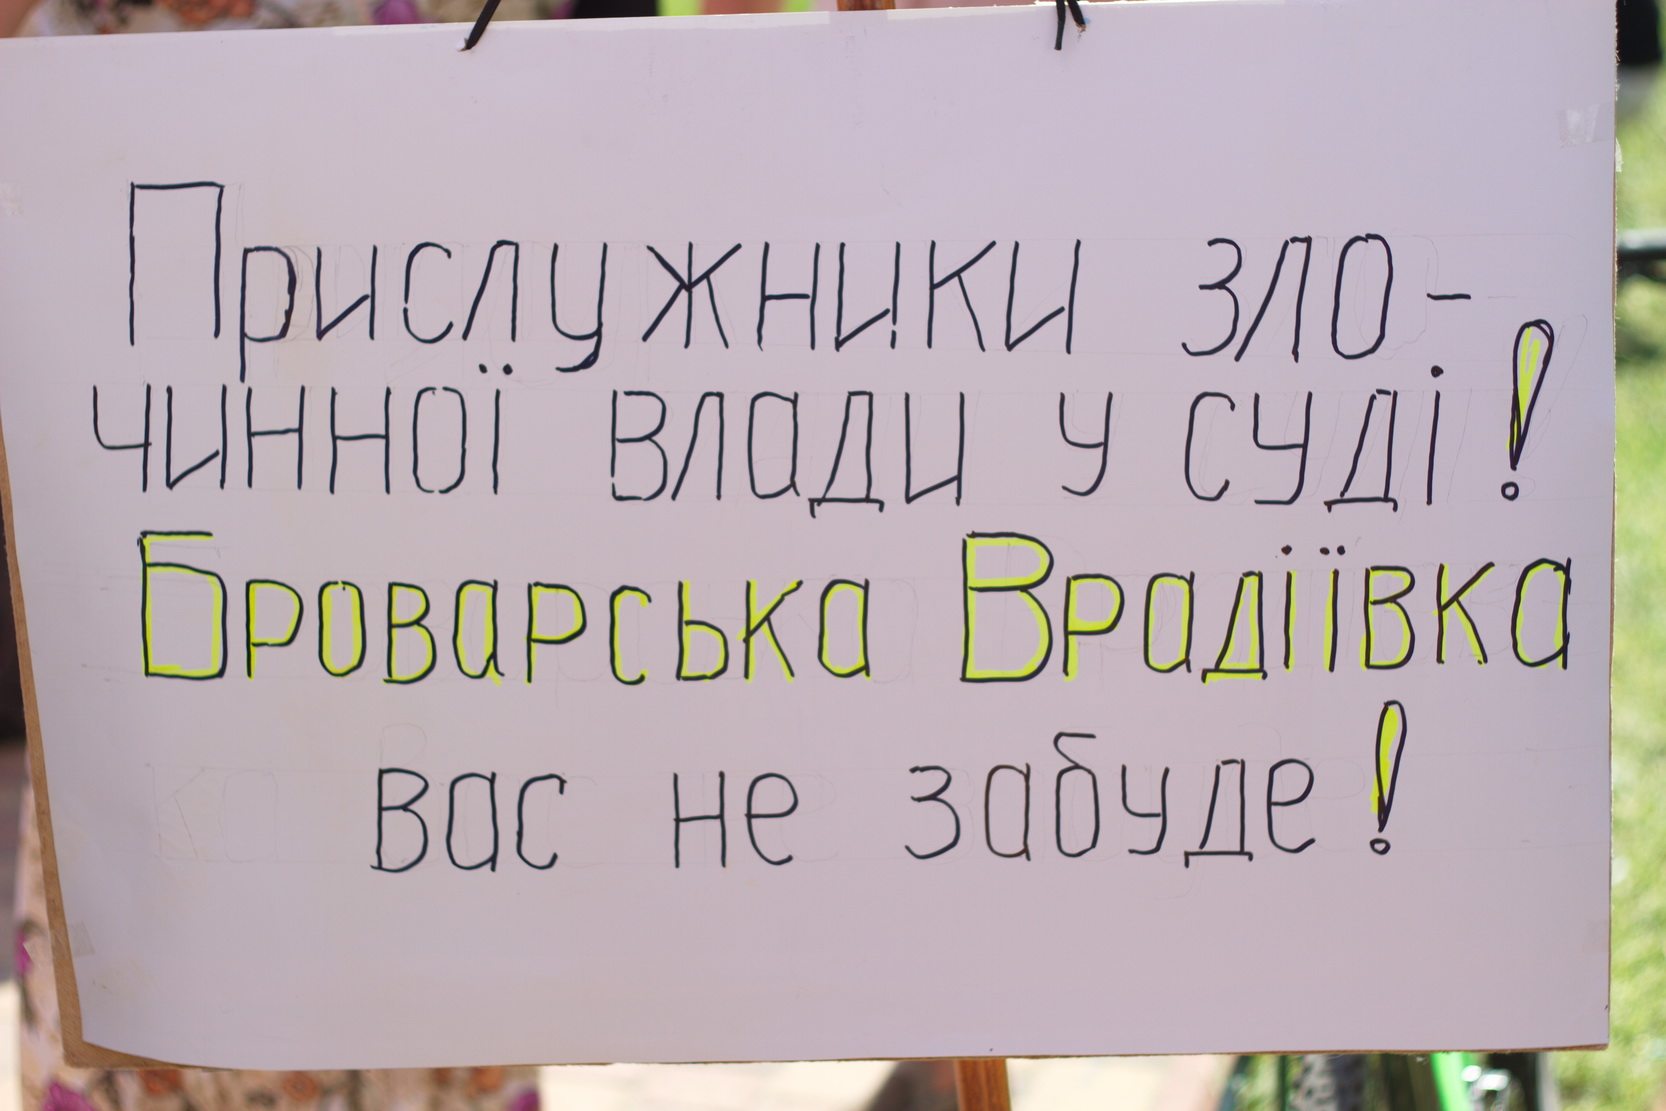 Прислужники зло-
чинної влади у суді!
Броварська Врадіївка
вас не забуде!